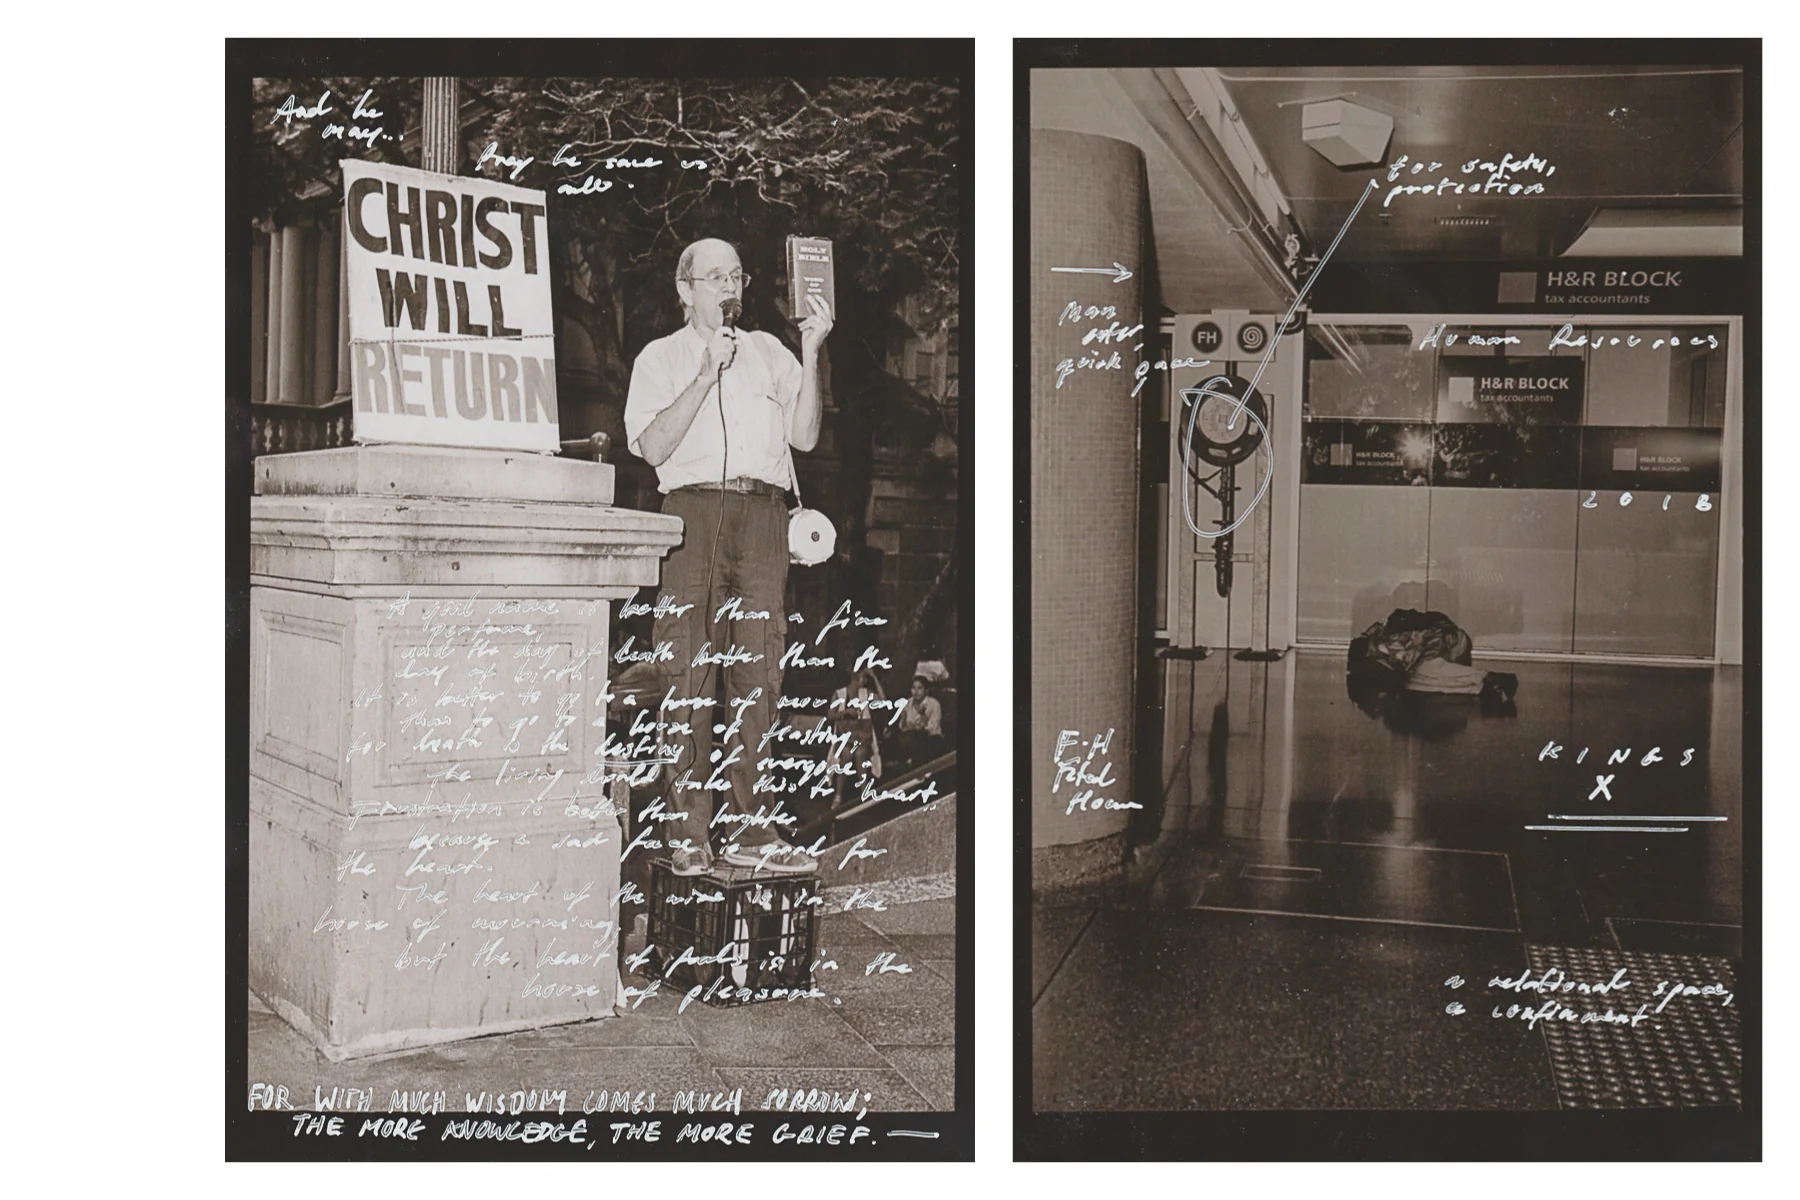 And he
may...
may he save us
all.
CHRIST
WILL
RETURN
HOLY
BIBLE
WORD
OF
GOD
A good name is better than a fine
perfume,
and the day of death better than the
day of birth.
It is better to go to a house of mourning
than to go to a house of feasting,
for death is the destiny of everyone;
the living should take this to heart.
Frustration is better than laughter
because a sad face is good for
the heart.
The heart of the wise is in the
house of mourning,
but the heart of fools is in the
house of pleasure.
FOR WITH MUCH WISDOM COMES MUCH SORROW;
THE MORE KNOWLEDGE, THE MORE GRIEF.
for safety,
protection
H&R BLOCK
tax accountants
Man
quick pace
FH
Human Resources
H&R BLOCK
tax accountants
H&R BLOCK
tax accountants
H&R BLOCK
tax accountants
2018
F.H
KINGS
X
a relational space,
a confinment